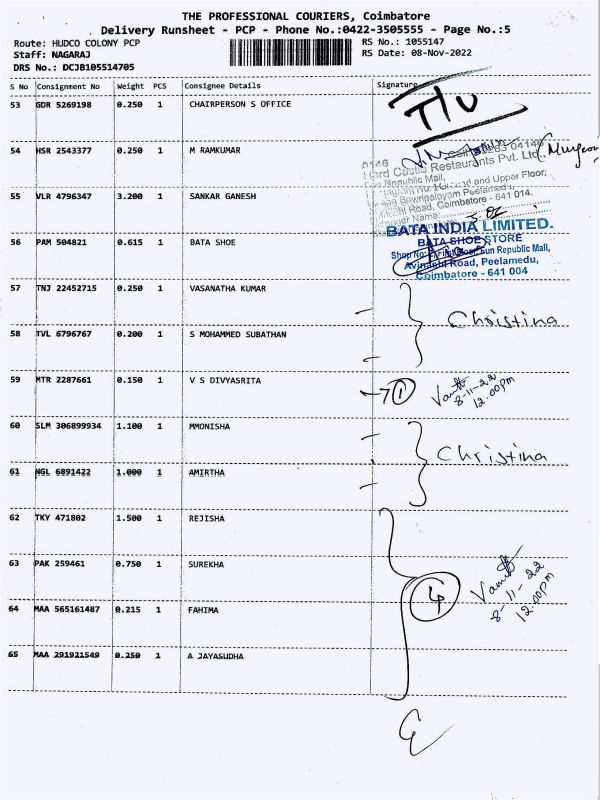 THE PROFESSIONAL COURIERS, Coimbatore
Delivery Runsheet - PCP - Phone No.:0422-3505555 - Page No.:5
Route: HUDCO COLONY PCP
RS No.: 1055147
Staff: NAGARAJ
RS Date: 08-Nov-2022
DRS No.: DCJB105514705
S No Consignment No Weight PCS Consignee Details Signature
53 GDR 5269198 0.250 1 CHAIRPERSON S OFFICE
T/U
54 HSR 2543377 0.250 1 M RAMKUMAR
Hard Castle Restaurants Pvt. Ltd.,
and Upper Floor,
Road, Coimbatore - 641 014.
55 VLR 4796347 3.200 1 SANKAR GANESH
56 PAM 504821 0.615 1 BATA SHOE
BATA INDIA LIMITED.
BATA SHOE STORE
Shop No: Fun Republic Mall,
Avinashi Road, Peelamedu,
Coimbatore - 641 004
57 TNJ 22452715 0.250 1 VASANATHA KUMAR
Christina
58 TVL 6796767 0.200 1 S MOHAMMED SUBATHAN
59 MTR 2287661 0.150 1 V S DIVYASRITA
1
8-11-22
12.00pm
60 SLM 306899934 1.100 1 MMONISHA
Christina
61 NGL 6891422 1.000 1 AMIRTHA
62 TKY 471802 1.500 1 REJISHA
63 PAK 259461 0.750 1 SUREKHA
4
8-11-22
12.00pm
64 MAA 565161487 0.215 1 FAHIMA
65 MAA 291921549 0.250 1 A JAYASUDHA